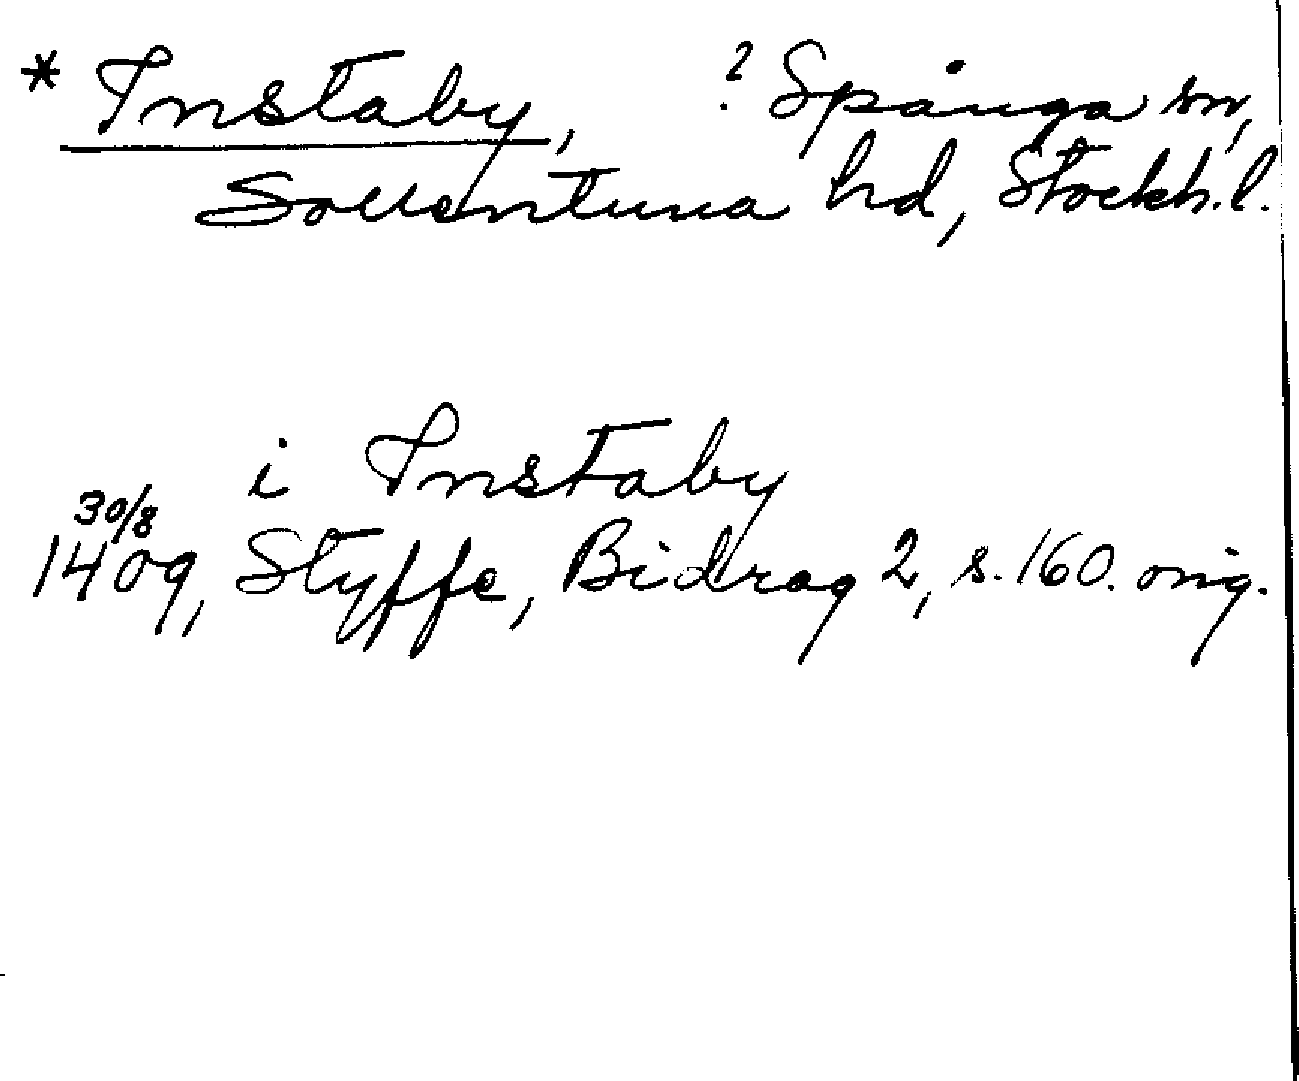 * Instaby, ? Spånga sn,
Sollentuna hd, Stockh. l.
i Instaby
30/8
1409, Styffe, Bidrag 2, s. 160. orig.